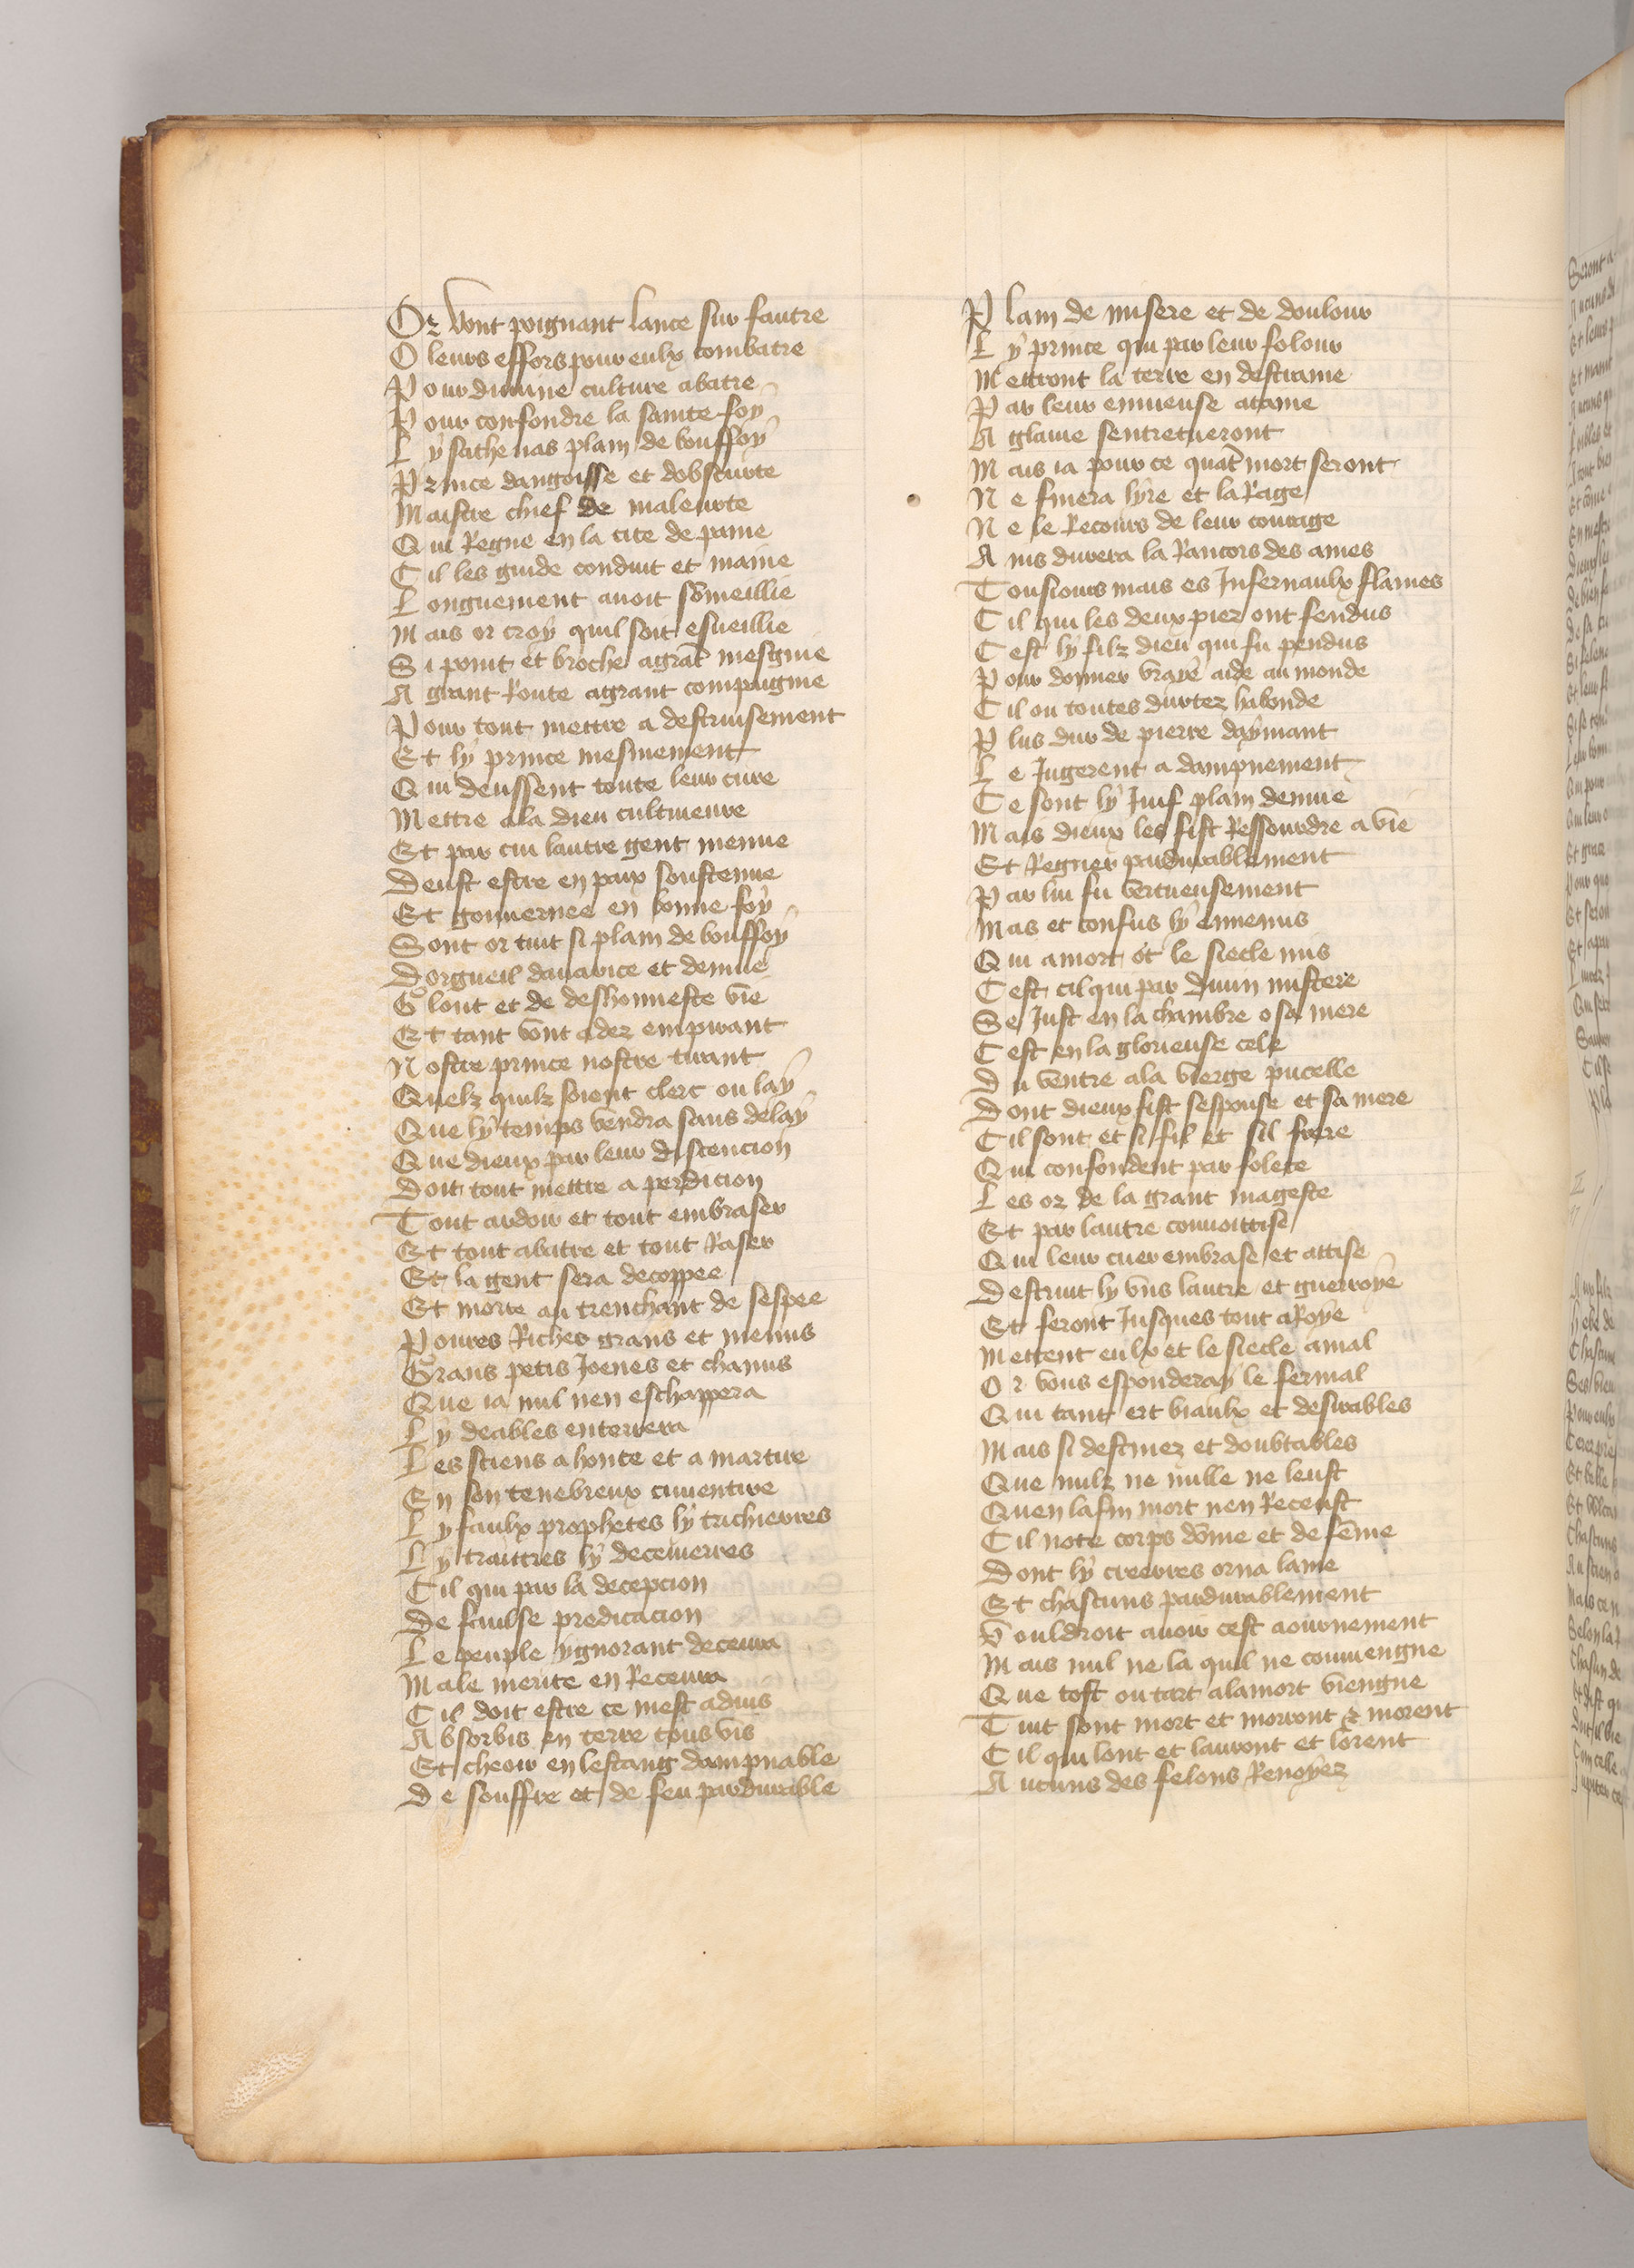 Or vont poignant lance sur fautre
O leurs effors pour eulx combatre
Pour diuine culture abatre
Pour confondre la sainte foy
Ly sathenas plain de bouffoy
Prince dangoisse et dobscurte
Maistre chief de maleurte
Qui Regne en la cite de paine
Cil les guide conduit et maine
Longuement auoit sõmeillie
Mais or croy quil soit esueillie
Si point et broche agrãt mesgnie
A grant Route agrant compaignie
Pour tout mettre a destruisement
Et ly prince mesmement
Qui deussent toute leur cure
Mettre ala dieu cultiueure
Et par cui lautre gent menue
Deust estre en paix soustenue
Et gouuernee en bonne foy
Sont or tuit si plain de bouffoy
Dorgueil dauarice et denuie
Glout et de deshonneste vie
Et tant vont adez empirant
Nostre prince nostre tirant
Quelz quilz soient clerc ou lay
Que ly temps vendra sans delay
Que dieux par leur discencion
Doit tout mettre a perdicion
Tout ardoir et tout embraser
Et tout abatre et tout Raser
Et la gent sera decoppee
Et morte au trenchant de sespee
Poures Riches grans et menus
Grans petis Joenes et chanus
Que ia nul nen eschappera
Ly deables enterrera
Les sciens a honte et a martire
En son tenebreux cimentire
Ly faulx prophetes ly tricherres
Ly traittres ly deceuerres
Cil qui par la decepcion
De faulse predicacion
Le peuple ygnorant deceura
Male merite en Receura
Cil doit estre ce mest aduis
Absorbis en terre tous vis
Et cheoir en lestang dampnable
De souffre et de feu pardurable
Plain de misere et de doulour
Ly prince qui par leur folour
Mettront la terre en destraine
Par leur enuieuse ataine
A glaiue sentretueront
Mais ia pour ce quãt mort seront
Ne finera lyre et laRage
Ne le Recours de leur courage
Ains durera la Rancors des ames
Tousiours mais es Infernaulx flames
Cil qui les deux pier ont fendus
Cest ly filz dieu qui fu pendus
Pour donner vraye aide au monde
Cil ou toutes durtez habonde
Plus dur de pierre daymant
Le Jugerent a dampnement
Ce sont ly Juif plain denuie
Mais dieux les fist Ressourdre a vie
Et Regner pardurablement
Par lui fu vertueusement
Mas et confus ly ennemis
Qui amort ot le siecle mis
Cest cil qui par diuin mistere
Se Just en la chambre o sa mere
Cest en la glorieuse cele
Du ventre ala vierge pucelle
Dont dieux fist sespouse et sa mere
Cil sont et si fil et sil frere
Qui confondent par folete
Les oz de la grant mageste
Et par lautre conuoittise
Qui leur cuer embrase et attise
Destruit ly vns lautre et guerroye
Et feront Jusques tout aRoye
Mettent eulx et le siecle amal
Or vous esponderay le fermal
Qui tant ert biaulx et desirables
Mais si destinez et doubtables
Que nulz ne nulle ne leust
Quen lafin mort nen Receust
Cil note corps dõme et de fẽme
Dont ly creerres orna lame
Et chascuns pardurablement
Vouldroit auoir cest aournement
Mais nul ne la quil ne conuiengne
Que tost ou tart alamort viengne
Tuit sont mort et morront & morent
Cil qui lont et lauront et lorent
Aucuns des felons Renoyez